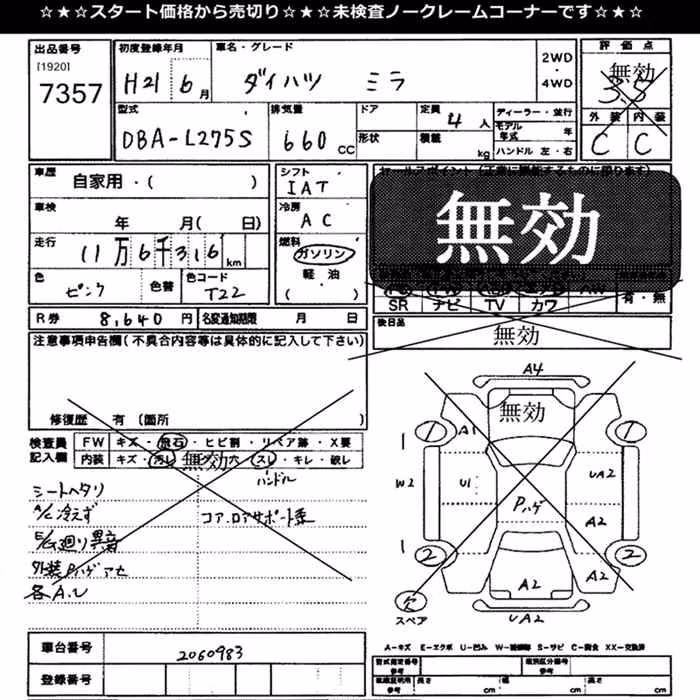 ☆★☆スタート価格から売切り☆★☆未検査ノークレームコーナーです☆★☆
出品番号 初度登録年月 車名・グレード 2WD・4WD 評価点
[1920]
7357 H21 6月 ダイハツ ミラ 無効 3.5
型式 排気量 ドア 定員 4人 ディーラー・並行 外装 内装
DBA-L275S 660CC 形状 積載 kg モデル年式 年 C C
ハンドル 左・右
車歴 自家用・( ) シフト IAT セールスポイント
車検 年 月( 日) 冷房 AC 無効
走行 11万6千316km 燃料 ガソリン
軽油
( )
色 ピンク 色替 色コード T22 SR ナビ TV カワ 有・無
R券 8,640円 名変通知期限 月 日 後日品 無効
注意事項申告欄(不具合内容等は具体的に記入して下さい)
修復歴 有(箇所 )
検査員記入欄 FW キズ・飛石・ヒビ割・リペア跡・X要
内装 キズ・汚レ 無効 穴 スレ・キレ・欠レ
ハンドル
シートヘタリ
A/C冷えず コア、ロアサポート系
E/G廻り異音
外装Pハゲアセ
各A.U
A4
無効
1 A1 1
W2 U1 Pハゲ UA2
A2
1 2 2
A2 A2
欠 UA2
スペア
A-キズ E-エクボ U-凹み W-補修跡 S-サビ C-腐食 XX-交換済
車台番号 2060983 型式指定番号 参考 類別区分番号 参考
登録番号 参考 長さ cm 幅 cm 高さ cm